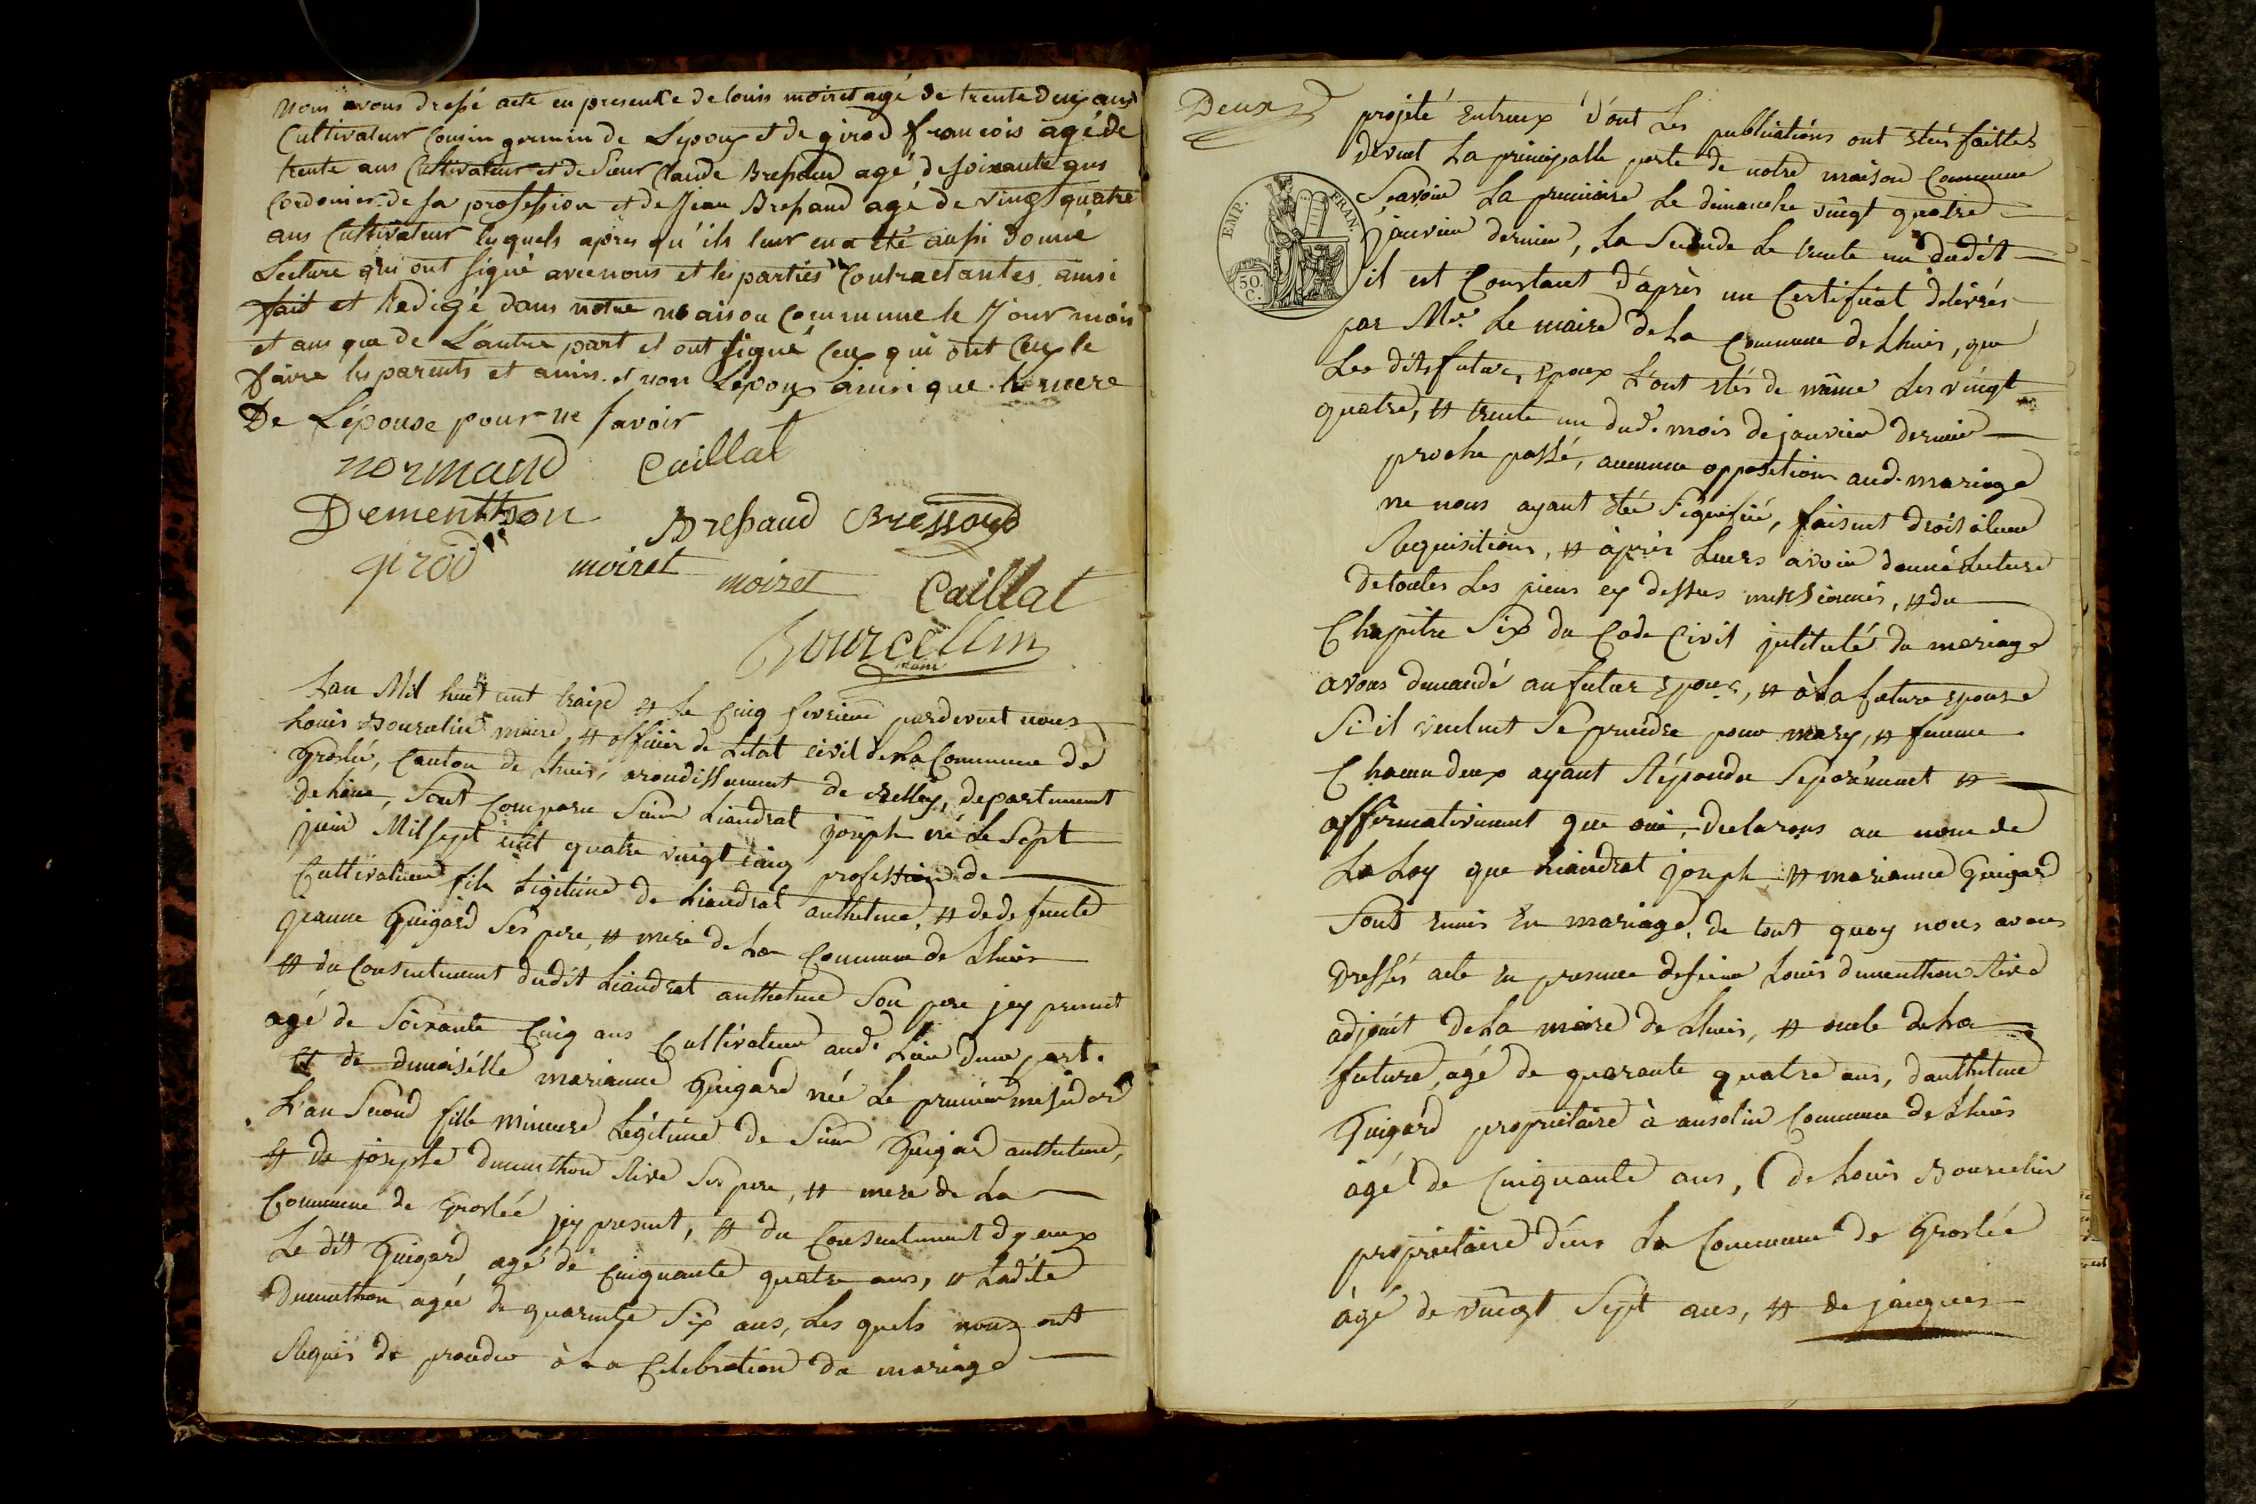 nous avons dressé acte en presence de louis moiret agé de trente deux ans
Cultivateur Cousin germain de L'epoux et de girod francois agé de
trente ans Cultivateur et de Sieur Claude Bressaud agé de soixante ans
Cordonier de sa profession et de Jean Bressaud agé de vingt quatre
ans Cultivateur lesquels apres qu'ils leur en a eté aussi Donné
Lecture qui ont signé avec nous et les parties Contractantes ainsi
fait et Redigé dans notre maison Commune le Jour mois
et ans que de L'autre part et ont signé Ceux qui ont Ceu le
faire les parents et amis et non L'epoux ainsi que la mere
De L'épouse pour ne savoir
normand Caillat
Dementhon Bressaud Bressoud
girod moiret moiret Caillat
Bourcellin
maire
Lan Mil huit cent traize et le Cinq fevrier pardevant nous
Louis Bourcelin maire, et officier de Letat civil de La Commune de
Groslée, Canton de Lhuis, arondissement de Belley, departement
de Lain, Sont Comparu Sieur Liaudrat joseph né Le Sept
juin Mil sept cent quatre vingt cinq profession de
Cultivateur fils Legitime de Liaudrat anthelme, et de defunte
jeanne Guigard Ses pere, et mere de La Commune de Lhuis
et du Consentement dudit Liaudrat anthelme Son pere jcy present
agé de Soixante Cinq ans Cultivateur aud. Lieu dune part.
Et de demoiselle marianne Guigard née Le premier mesidord
L'an Second fille mineure Légitime de Sieur Guigard anthelme,
et de josephe dementhon Rive Ses pere, et mere de La
Commune de Groslée jcy present, et du Consentement dyceux
Le dit Guigard agé de Cinquante quatre ans, et Ladite
Dementhon agée de quarante Six ans, Les quels nous ont
Requis de proceder à La Celebration du mariage
Deux
EMP. FRAN.
50.
C.
projeté Entreux d'ont Les publications ont étés faittes
devant La principalle porte de notre maison Commune
Sçavoir La premiere Le dimanche vingt quatre
janvier dernier, La Seconde Le trente un dudit
il est Constant d'après un Certificat délivrés
par Mr. Le maire de La Commune de Lhuis, que
Les dits futurs Epoux L'ont étés de même Les vingt
quatre, et trente un dud. mois de janvier dernier
proche passé, aucunne opposition aud. mariage
ne nous ayant été Signifiée, faisant droit à leur
Requisition, et àprès Leurs avoir donné Lecture
de toutes Les pieces cy dessus mensionnés, et du
Chapitre Six du Code Civil jntitulé du mariage
avons demandé au futur Epoux, et à La future Epouse
Si il veulent Se prendre pour mary, et femme
Chacun deux ayant Répondu Séparément et
affirmativement que oui, declarons au nom de
La Loy que Liaudrat joseph et marianne Guigard
Sont unis En mariage, de tout quoy nous avons
dressés acte en presence de sieur Louis dementhon Rive
adjoint de La mairie de Lhuis, et oncle de La
future, agé de quarante quatre ans, danthelme
Guigard proprietaire à ansolin Commune de Lhuis
agé de Cinquante ans, de Louis Bourcelin
proprietaire dans La Commune de Groslée
àgé de vingt Sept ans, et de jacques